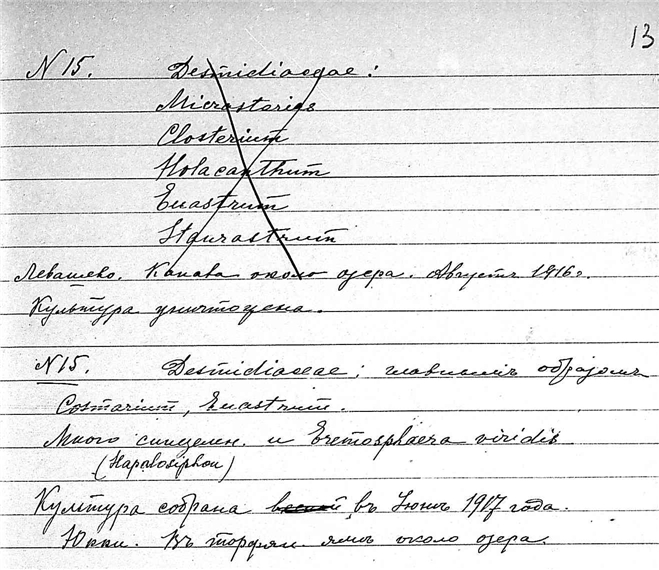 13
N 15. Desmidiaceae:
Micrasterias
Closterium
Holacanthum
Euastrum
Staurastrum
Левашево. Канава около озера. Августъ 1916 г.
Культура уничтожена.
N 15. Desmidiaceae; главнымъ образомъ
Cosmarium, Euastrum.
Много синезелен. и Eremosphaera viridis
(Hapalosiphon)
Культура собрана въ Іюнѣ 1917 года.
Юкки. Въ торфян. ямѣ около озера.